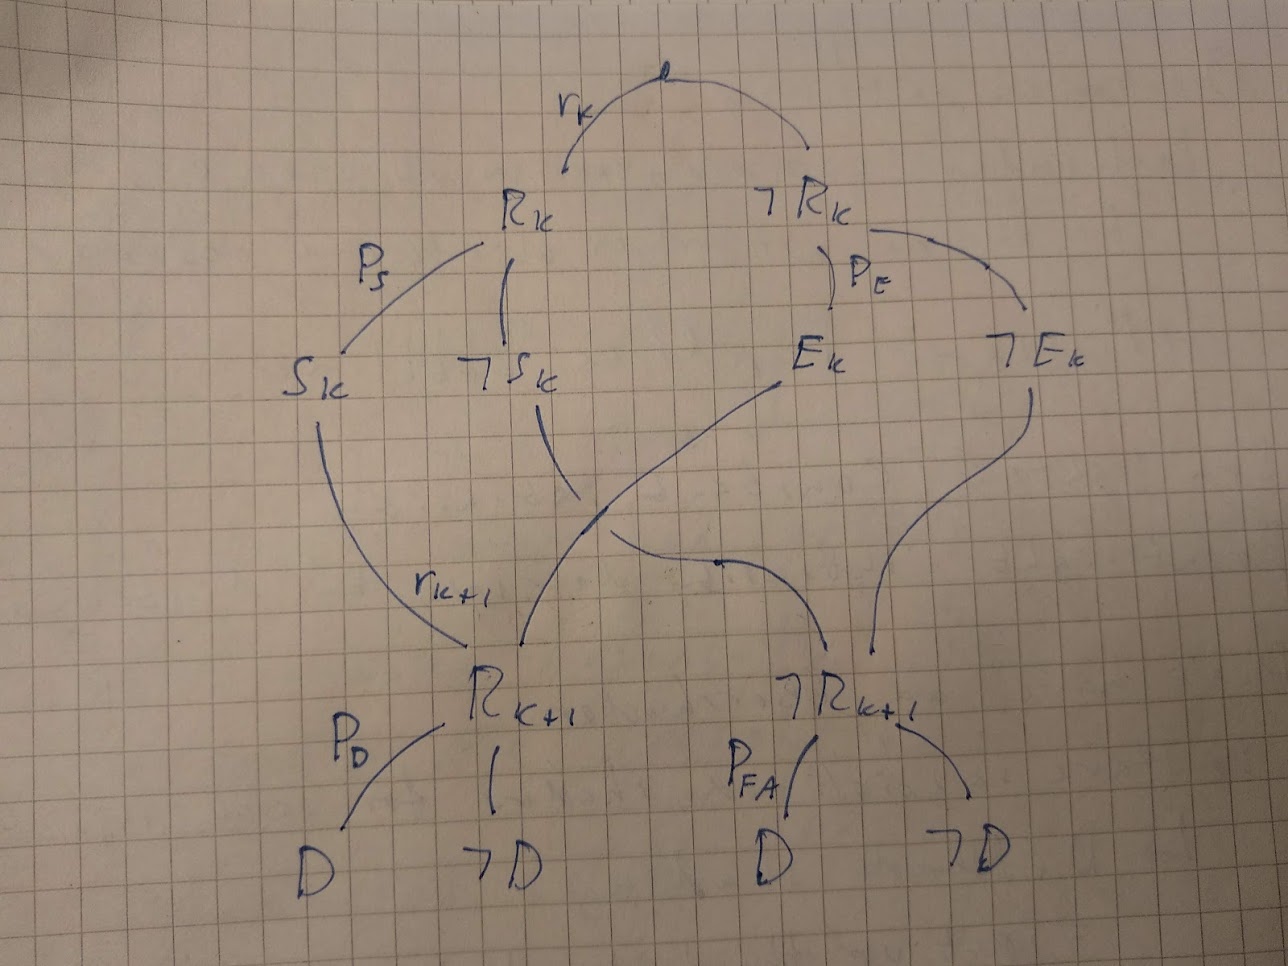 r_k
R_k ¬R_k
P_S P_E
S_k ¬S_k E_k ¬E_k
r_{k+1}
R_{k+1} ¬R_{k+1}
P_D P_{FA}
D ¬D D ¬D